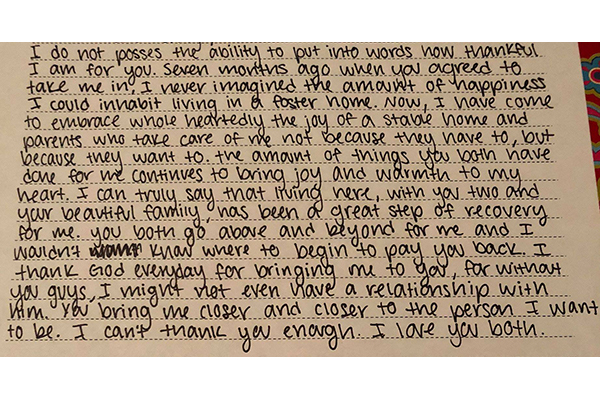 I do not posses the ability to put into words how thankful
I am for you. Seven months ago when you agreed to
take me in, I never imagined the amount of happiness
I could inhabit living in a foster home. Now, I have come
to embrace whole heartedly the joy of a stable home and
parents who take care of me not because they have to, but
because they want to. the amount of things you both have
done for me continues to bring joy and warmth to my
heart. I can truly say that living here, with you two and
your beautiful family, has been a great step of recovery
for me. you both go above and beyond for me and I
wouldn't know where to begin to pay you back. I
thank God everyday for bringing me to you, for without
you guys, I might not even have a relationship with
him. You bring me closer and closer to the person I want
to be. I can't thank you enough. I love you both.